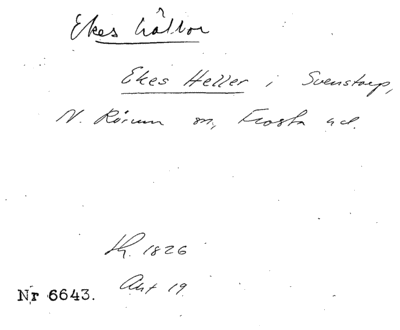 Ekes hålor
Ekes Heller i Svenstorp,
N. Rörum sn, Frosta hd.
Lh. 1826
Ant 19
Nr 6643.